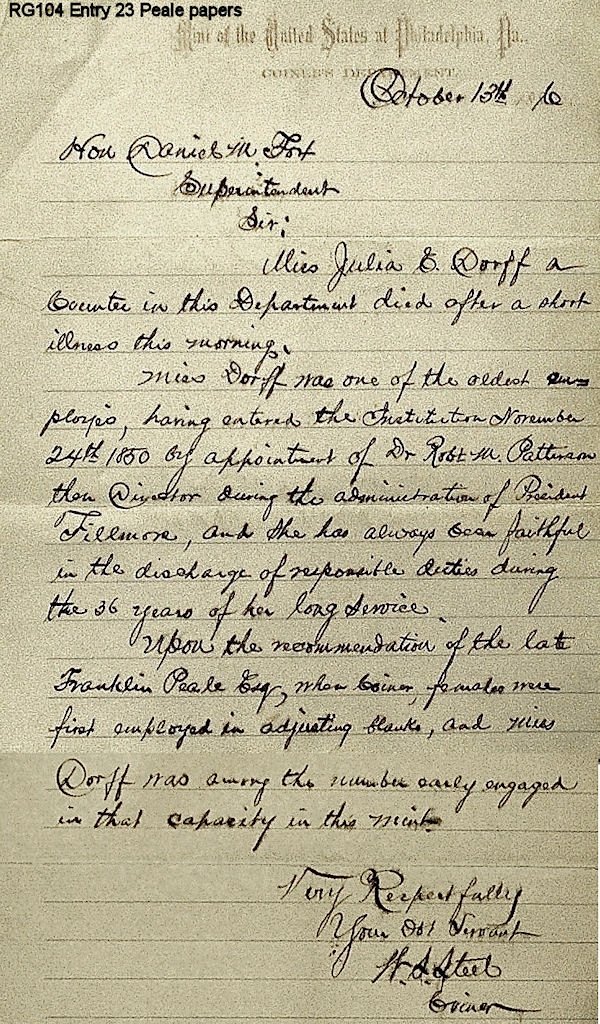 RG104 Entry 23 Peale papers
Mint of the United States at Philadelphia, Pa.
COINER'S DEPARTMENT.
October 13th
Hon Daniel M. Fox
Superintendent
Sir:
Miss Julia E. Dorff a
Counter in this Department died after a short
illness this morning.
Miss Dorff was one of the oldest em-
ployés, having entered the Institution November
24th 1850 by appointment of Dr Robt M. Patterson
then Director during the administration of President
Fillmore, and she has always been faithful
in the discharge of responsible duties during
the 36 years of her long service.
Upon the recommendation of the late
Franklin Peale Esq, when Coiner, females were
first employed in adjusting blanks, and Miss
Dorff was among the number early engaged
in that capacity in this mint
Very Respectfully
Your Obt Servant
W. S. Steel
Coiner